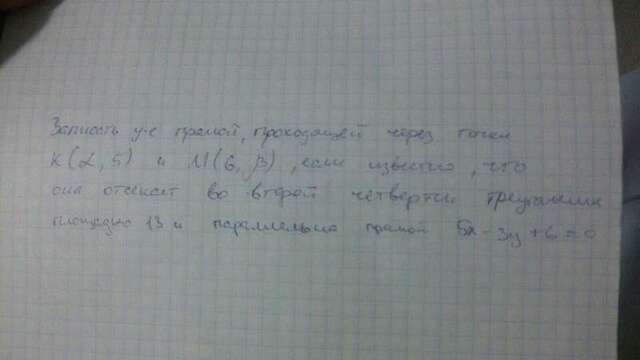 Записать ур-е прямой, проходящей через точки
K(α, 5) и M(6, β), если известно, что
она отсекает во второй четверти треугольник
площадью 13 и параллельна прямой 5x-3y+6=0